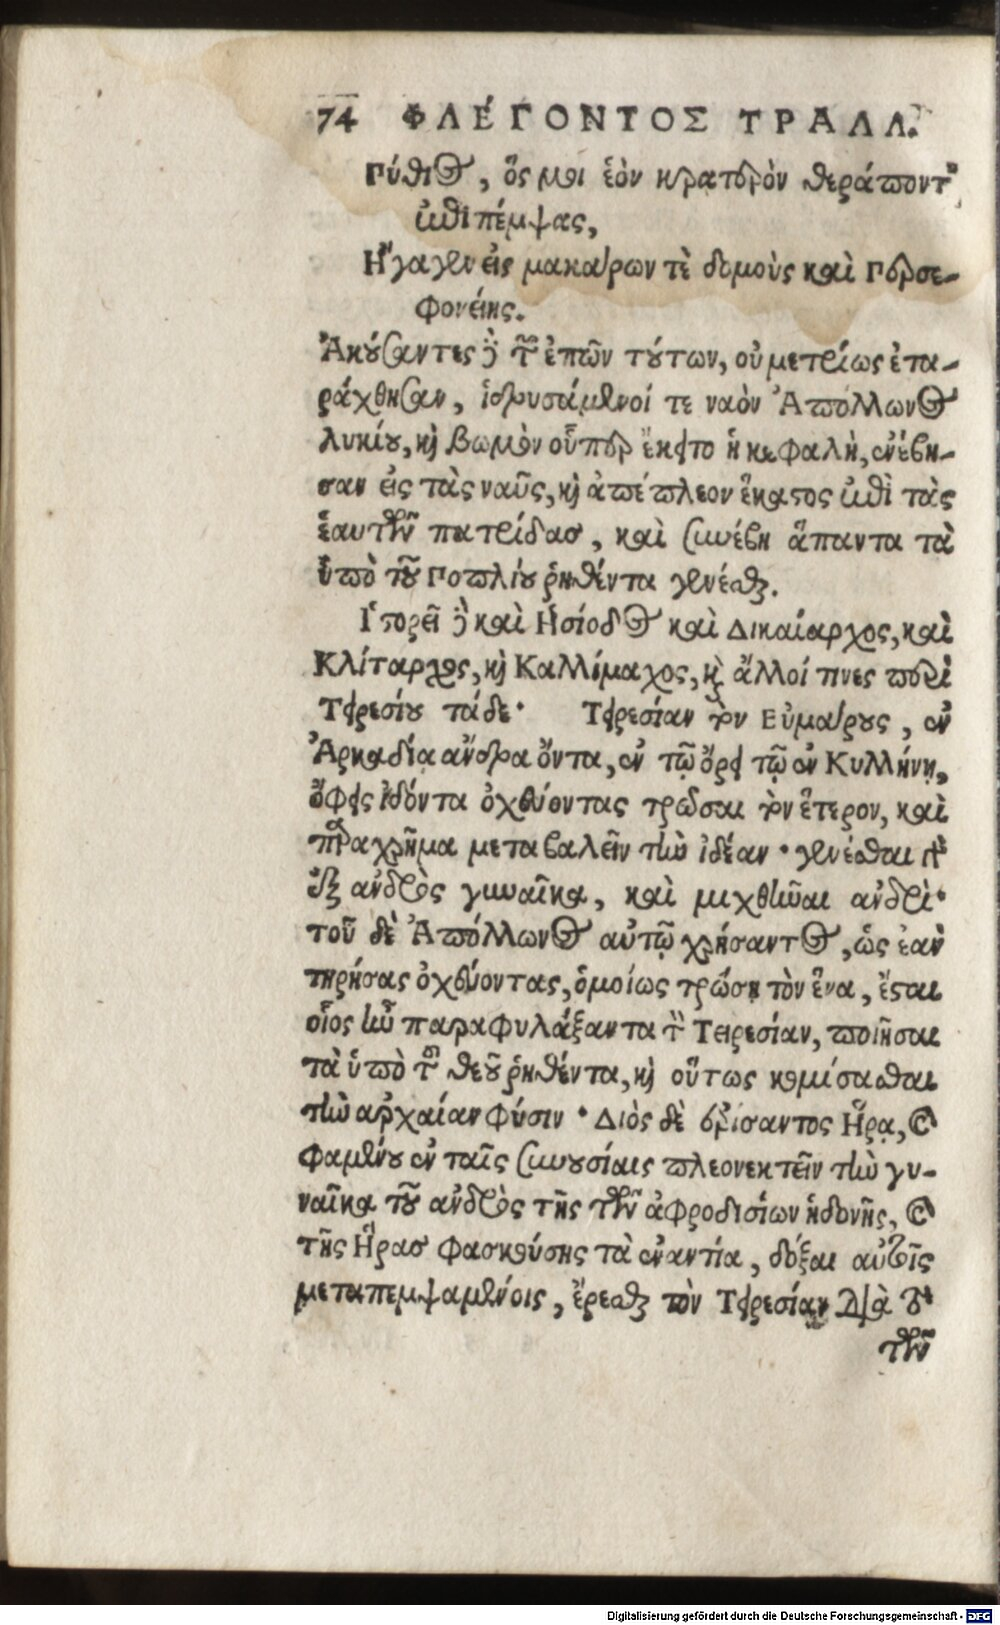 74 ΦΛΈΓΟΝΤΟΣ ΤΡΑΛΛ.
Πύθιος, ὅς μοι ἑὸν κρατερὸν θεράποντ'
ἐπιπέμψας,
Ἤγαγεν εἰς μακάρων τὲ δομοὺς καὶ Περσε-
φονείης.
Ἀκούσαντες δὲ τῶν ἐπῶν τούτων, οὐ μετρίως ἐτα-
ράχθησαν, ἱδρυσάμενοί τε ναὸν Ἀπόλλωνος
λυκίου, καὶ βωμὸν οὗπερ ἔκειτο ἡ κεφαλὴ, ἐνέβη-
σαν εἰς τὰς ναῦς, καὶ ἀπέπλεον ἕκαστος ἐπὶ τὰς
ἑαυτῶν πατρίδας, καὶ συνέβη ἅπαντα τὰ
ὑπὸ τοῦ Ποπλίου ῥηθέντα γενέσθαι.
Ἱστορεῖ δὲ καὶ Ἡσίοδος καὶ Δικαίαρχος, καὶ
Κλίταρχος, καὶ Καλλίμαχος, καὶ ἄλλοί τινες περὶ
Τειρεσίου τάδε· Τειρεσίαν τὸν Εὐμάρους, ἐν
Ἀρκαδία ἄνδρα ὄντα, ἐν τῷ ὄρει τῷ ἐν Κυλλήνῃ,
ὄφεις ἰδόντα ὀχεύοντας τρῶσαι τὸν ἕτερον, καὶ
παραχρῆμα μεταβαλεῖν τὴν ἰδέαν· γενέσθαι γὰρ
ἐξ ἀνδρὸς γυναῖκα, καὶ μιχθῆναι ἀνδρί·
τοῦ δὲ Ἀπόλλωνος αὐτῷ χρήσαντος, ὡς ἐὰν
τηρήσας ὀχεύοντας, ὁμοίως τρώσῃ τὸν ἕνα, ἔσται
οἷος ἦν παραφυλάξαντα τὸν Τειρεσίαν, ποιῆσαι
τὰ ὑπὸ τοῦ θεοῦ ῥηθέντα, καὶ οὕτως κομίσασθαι
τὴν ἀρχαίαν φύσιν· Διὸς δὲ ἐρίσαντος Ἥρᾳ, καὶ
φαμένου ἐν ταῖς συνουσίαις πλεονεκτεῖν τὴν γυ-
ναῖκα τοῦ ἀνδρὸς τῆς τῶν ἀφροδισίων ἡδονῆς, καὶ
τῆς Ἥρας φασκούσης τὰ ἐναντία, δόξαι αὐτοῖς
μεταπεμψαμένοις, ἔρεσθαι τὸν Τειρεσίαν διὰ τὸ
τῶν
Digitalisierung gefördert durch die Deutsche Forschungsgemeinschaft - DFG